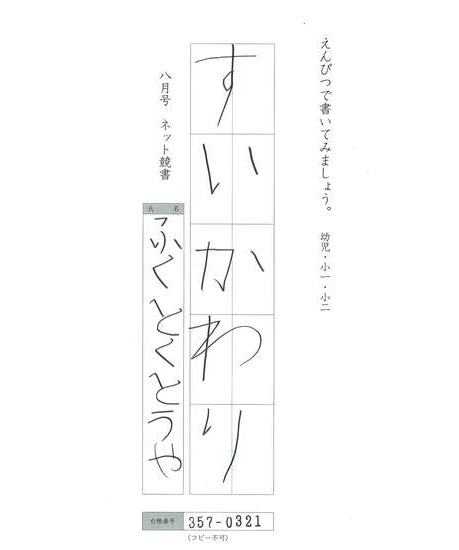 えんぴつで書いてみましょう。　幼児・小一・小二
すいかわり
八月号　ネット競書
氏名
ふくとくとうや
合格番号 357-0321
（コピー不可）